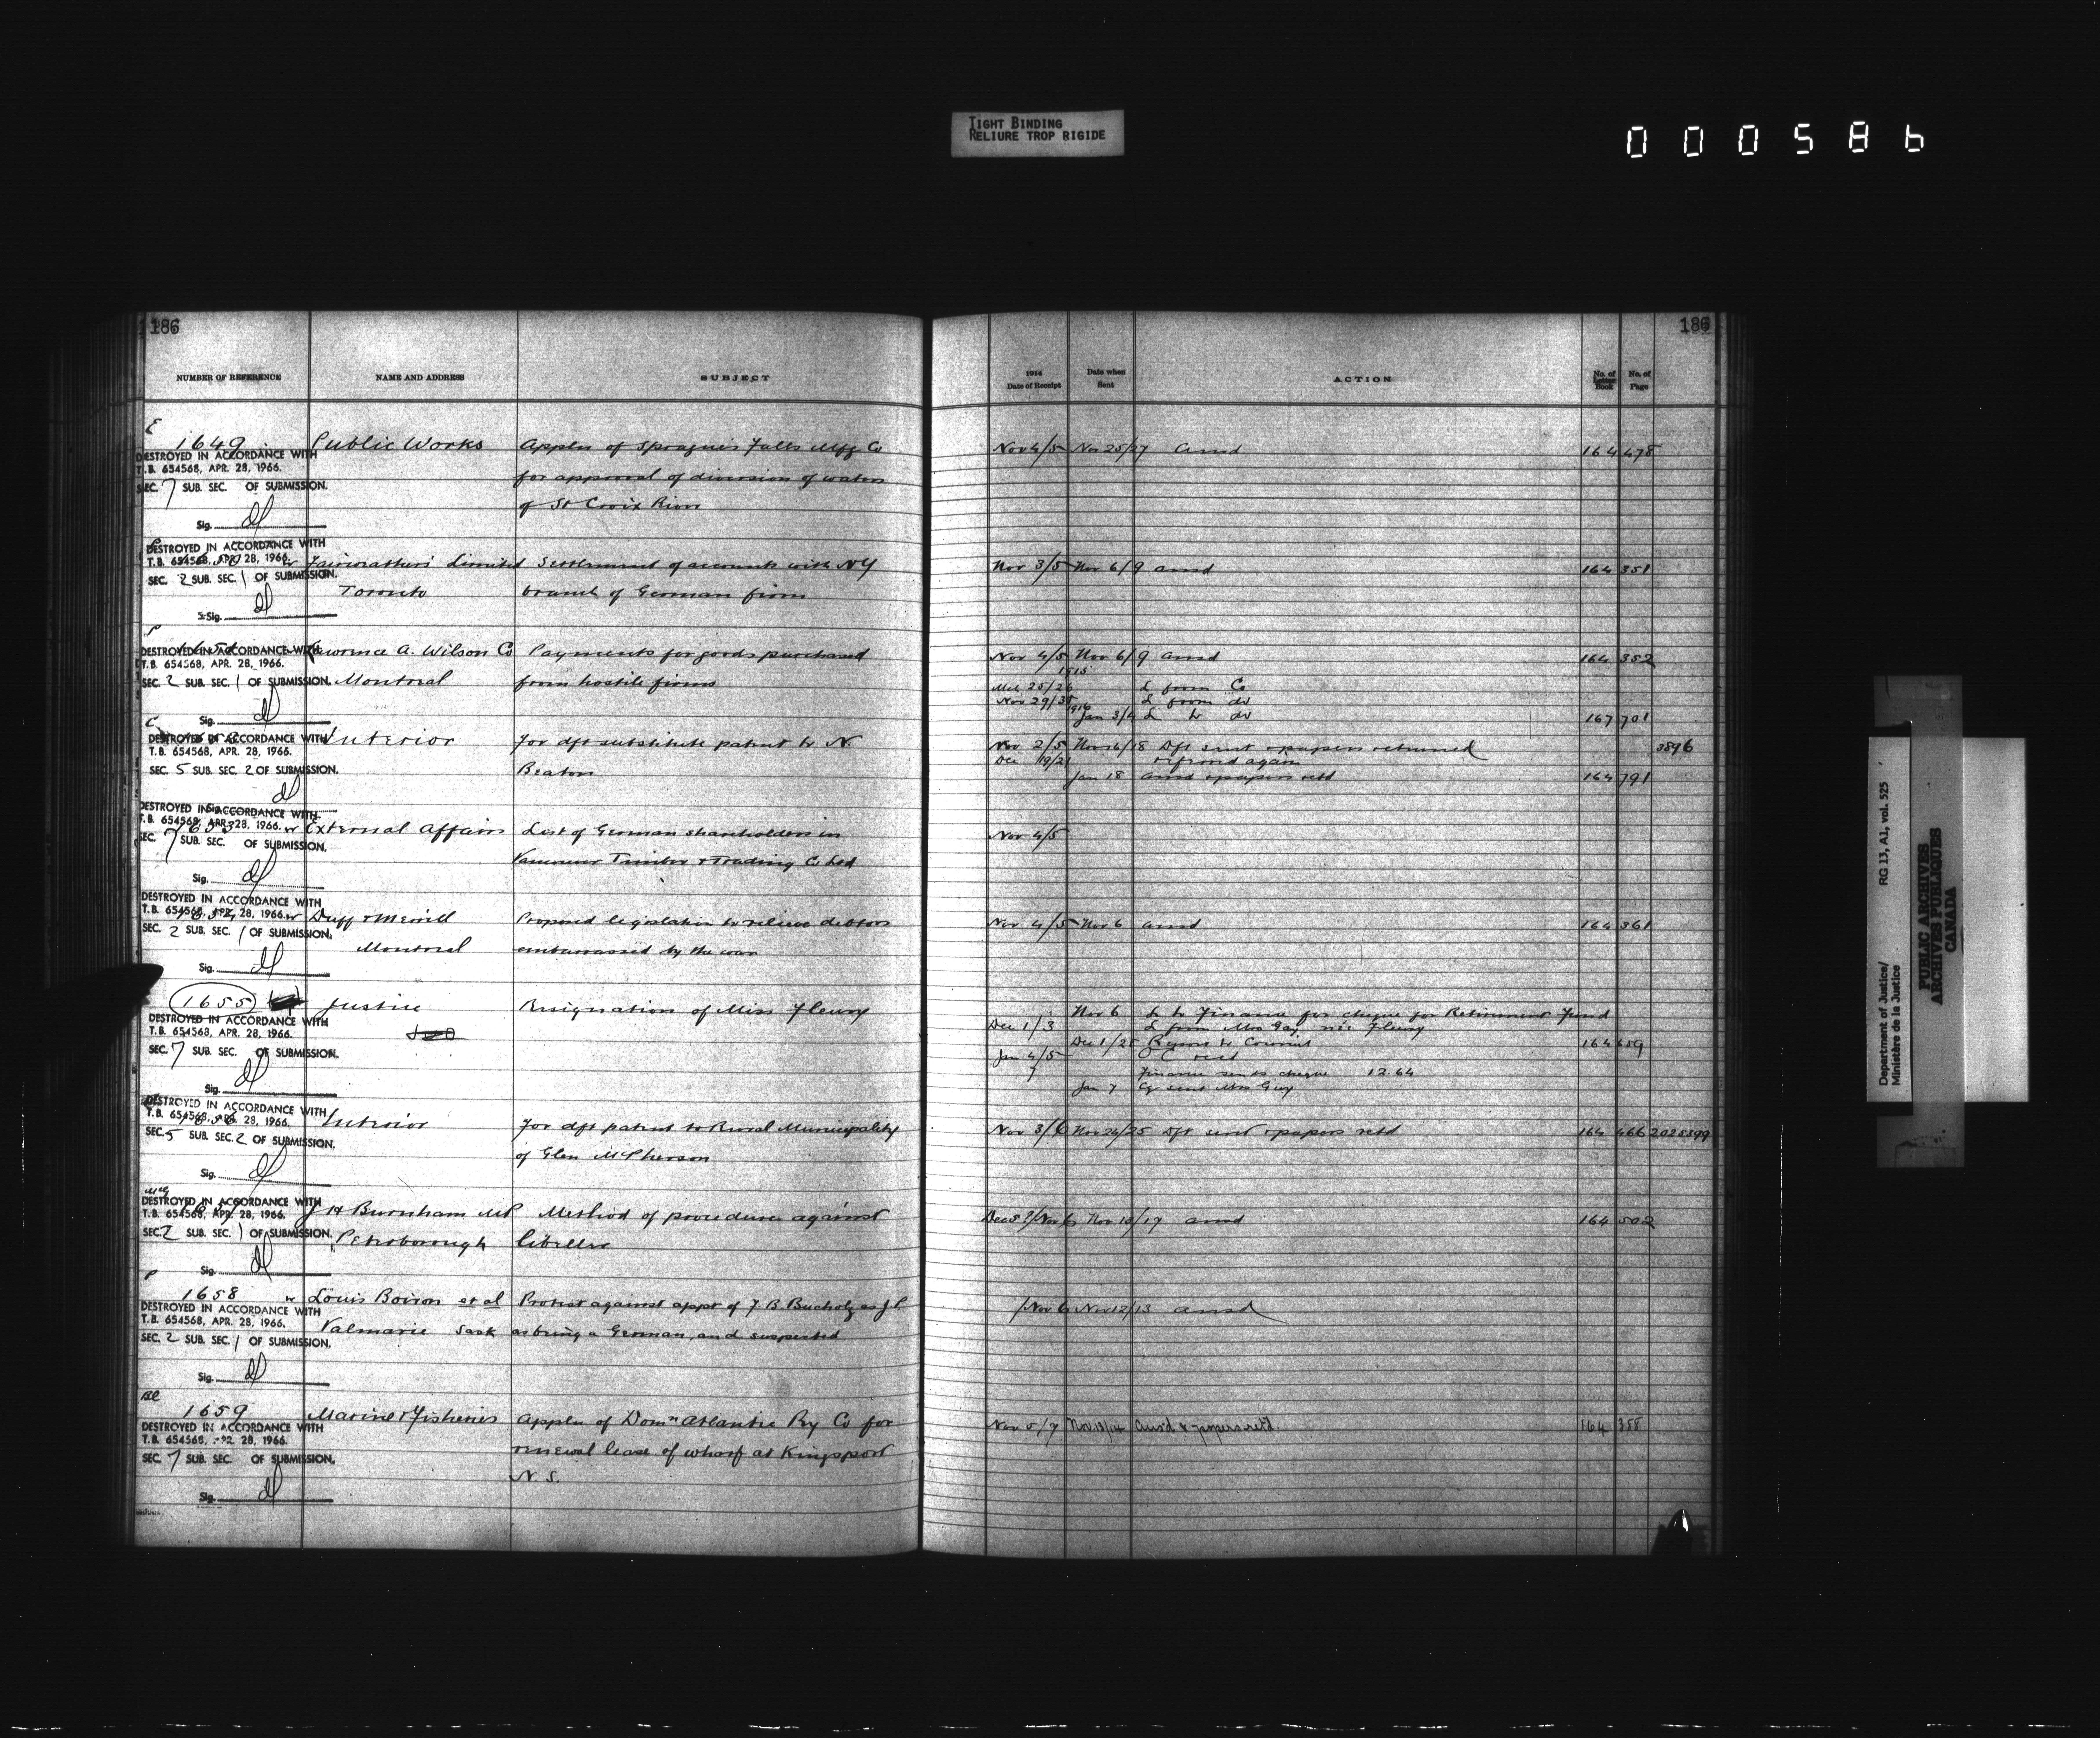 TIGHT BINDING
RELIURE TROP RIGIDE
000586
186
186
NUMBER OF REFERENCE NAME AND ADDRESS SUBJECT 1914 Date of Receipt Date when Sent ACTION No. of Letter Book No. of Page
E
1649 Public Works Applcn of Sprague's Falls Mfg Co Nov 4/5 Nov 25/27 ansd 164 478
DESTROYED IN ACCORDANCE WITH
T.B. 654568, APR. 28, 1966.
for approval of diversion of waters
SEC. 7 SUB. SEC. OF SUBMISSION.
of St Croix River
Sig.
DESTROYED IN ACCORDANCE WITH
T.B. 654568, APR. 28, 1966.
Fairweathers Limited Settlement of accounts with NY Nov 3/5 Nov 6/9 ansd 164 351
SEC. 2 SUB. SEC. 1 OF SUBMISSION.
Toronto branch of German firm
Sig.
P
DESTROYED IN ACCORDANCE WITH
Lawrence A. Wilson Co Payments for goods purchased Nov 4/5 Nov 6/9 ansd 164 352
T.B. 654568, APR. 28, 1966.
1915
SEC. 2 SUB. SEC. 1 OF SUBMISSION. Montreal from hostile firms
25/26 L from Co
Nov 29/30 L from do
1916
Sig. Jan 3/4 L to do 167 701
C
DESTROYED IN ACCORDANCE WITH
Interior For dft substitute patent to N. Nov 2/5 Nov 16/18 Dft sent & papers returned 3896
T.B. 654568, APR. 28, 1966.
Dec 19/21 referred again
SEC. 5 SUB. SEC. 2 OF SUBMISSION. Beaton
Jan 18 ansd & papers retd 164 791
Sig.
DESTROYED IN ACCORDANCE WITH
T.B. 654568, APR. 28, 1966.
1653 External Affairs List of German shareholders in Nov 4/5
SEC. 7 SUB. SEC. OF SUBMISSION.
Vancouver Timber & Trading Co Ltd
Sig.
DESTROYED IN ACCORDANCE WITH
T.B. 654568, APR. 28, 1966.
1654 Duff & Merrill Proposed legislation to relieve debtors Nov 4/5 Nov 6 ansd 164 361
SEC. 2 SUB. SEC. 1 OF SUBMISSION.
Montreal embarrassed by the war
Sig.
1655 Justice Resignation of Miss Fleury Nov 6 L to Finance for cheque for Retirement Fund
DESTROYED IN ACCORDANCE WITH
Dec 1/3 L from Mrs Gay née Fleury
T.B. 654568, APR. 28, 1966.
Report to Council 164 659
SEC. 7 SUB. SEC. OF SUBMISSION.
Jan 4/5 O C recd
7 Finance sends cheque 12.64
Sig. Jan 7 Cq sent Mrs Gay
DESTROYED IN ACCORDANCE WITH
T.B. 654568, APR. 28, 1966.
1656 Interior For dft patent to Rural Municipality Nov 3/6 Nov 24/25 Dft sent & papers retd 164 466 2025399
SEC. 5 SUB. SEC. 2 OF SUBMISSION.
of Glen McPherson
Sig.
DESTROYED IN ACCORDANCE WITH
T.B. 654568, APR. 28, 1966.
J H Burnham MP Method of procedure against ansd 164 502
SEC. 2 SUB. SEC. 1 OF SUBMISSION.
Peterborough libeller
Sig.
P
1658 Louis Boiron et al Protest against appt of F. B. Bucholz as J.P. Nov 6 Nov 12/13 ansd
DESTROYED IN ACCORDANCE WITH
T.B. 654568, APR. 28, 1966.
Valmarie Sask as being a German, and suspected
SEC. 2 SUB. SEC. 1 OF SUBMISSION.
Sig.
1659 Marine & Fisheries Applcn of Domn Atlantic Ry Co for Nov 5/7 Nov. 13/14 Ans'd & papers ret'd. 164 388
DESTROYED IN ACCORDANCE WITH
T.B. 654568, APR. 28, 1966.
renewal lease of wharf at Kingsport
SEC. 7 SUB. SEC. OF SUBMISSION.
N.S.
Sig.
Department of Justice/ RG 13, A1, vol. 525
Ministère de la Justice
PUBLIC ARCHIVES
ARCHIVES PUBLIQUES
CANADA